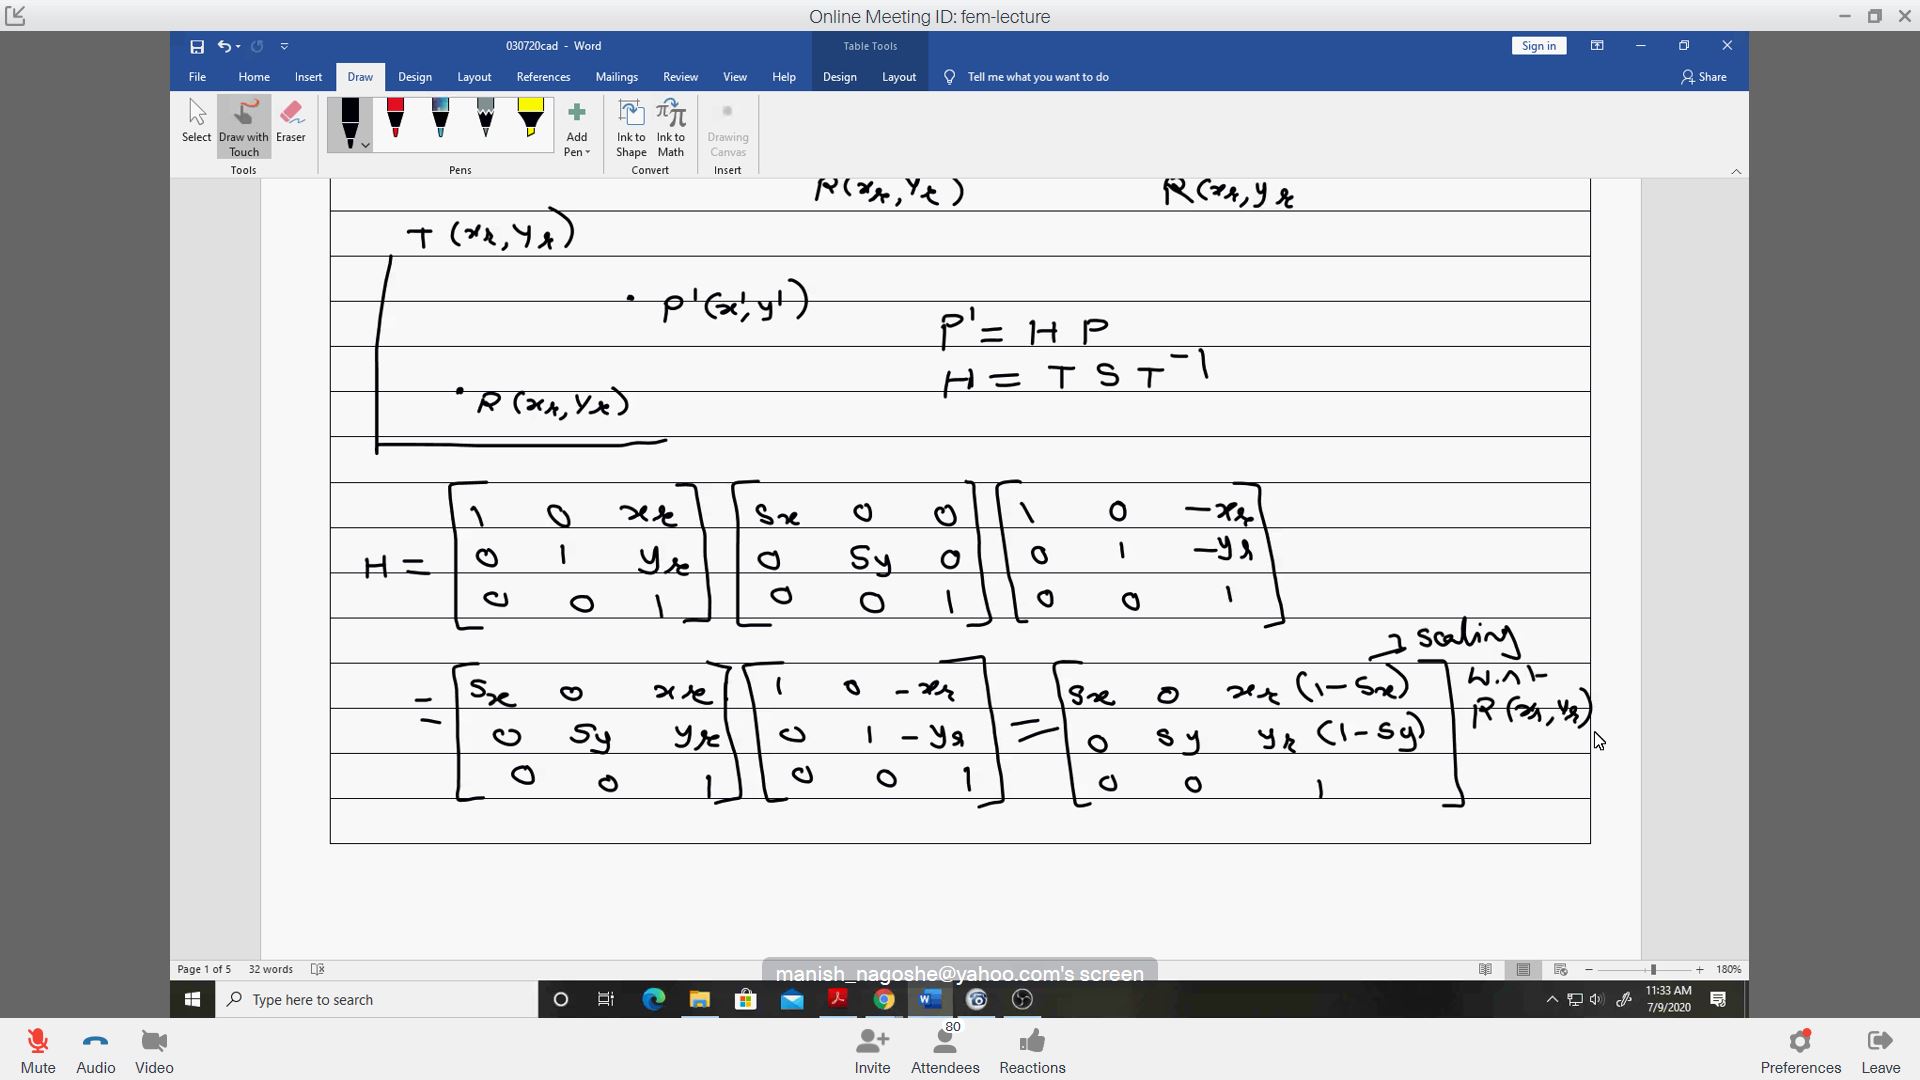 Online Meeting ID: fem-lecture
030720cad - Word
Table Tools
Sign in
File Home Insert Draw Design Layout References Mailings Review View Help Design Layout Tell me what you want to do Share
Select Draw with Touch Eraser Add Pen Ink to Shape Ink to Math Drawing Canvas
Tools Pens Convert Insert
R(xr, yr) R(xr, yr
T (xr, yr)
P'(x', y')
P' = H P
H = T S T⁻¹
R (xr, yr)
H = [1 0 xr] [Sx 0 0] [1 0 -xr]
[0 1 yr] [0 Sy 0] [0 1 -yr]
[0 0 1] [0 0 1] [0 0 1]
→ scaling
w.r.t
R (xr, yr)
= [Sx 0 xr] [1 0 -xr] = [Sx 0 xr (1-Sx)]
[0 Sy yr] [0 1 -yr] [0 Sy yr (1-Sy)]
[0 0 1] [0 0 1] [0 0 1]
Page 1 of 5 32 words 180%
manish_nagoshe@yahoo.com's screen
Type here to search
11:33 AM
7/9/2020
80
Mute Audio Video Invite Attendees Reactions Preferences Leave